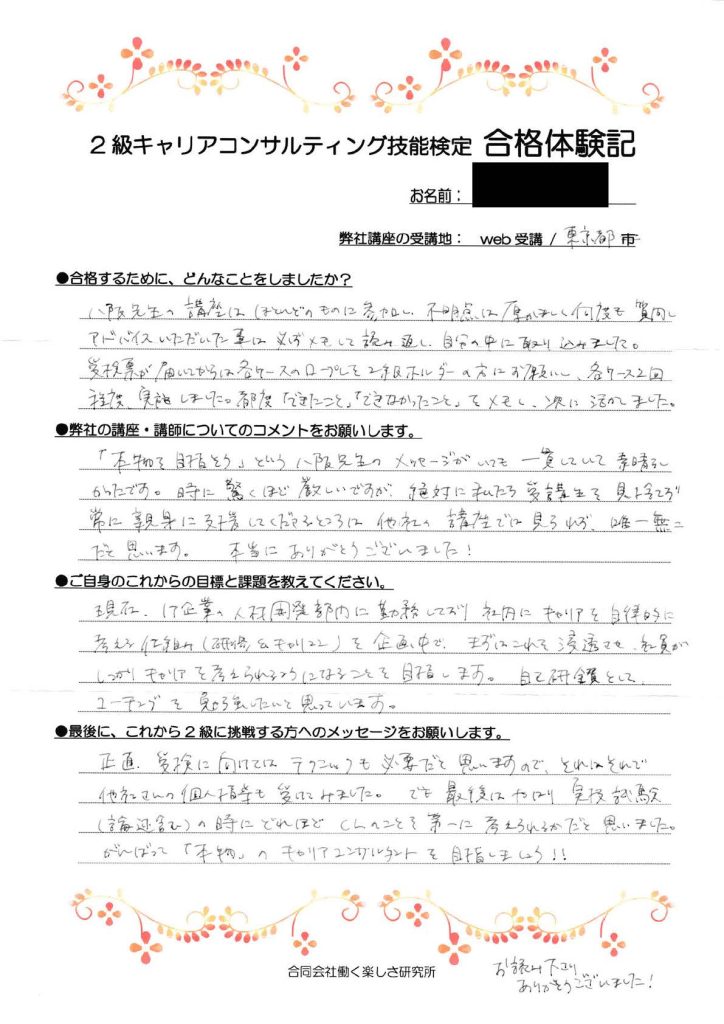 2級キャリアコンサルティング技能検定 合格体験記
お名前：
弊社講座の受講地： web受講 / 東京都 市
●合格するために、どんなことをしましたか？
八阪先生の講座はほとんどのものに参加し、不明点は厚かましく何度も質問し
アドバイスいただいた事は必ずメモして読み返し、自分の中に取り込みました。
受検票が届いてからは各ケースのロープレを2級ホルダーの方にお願いし、各ケース2回
程度、実施しました。都度「できたこと」「できなかったこと」をメモし、次に活かしました。
●弊社の講座・講師についてのコメントをお願いします。
「本物を目指そう」という八阪先生のメッセージがいつも一貫していて素晴らし
かったです。時に驚くほど厳しいですが、絶対に私たち受講生を見捨てず
常に親身に支援してくださるところは他社の講座では見られず、唯一無二
だと思います。 本当にありがとうございました！
●ご自身のこれからの目標と課題を教えてください。
現在、IT企業の人材開発部内に勤務しており社内にキャリアを自律的に
考える仕組み（研修＆キャリコン）を企画中で、まずはこれを浸透させ、社員が
しっかりキャリアを考えられるようになることを目指します。 自己研鑽として、
コーチングを勉強したいと思っています。
●最後に、これから2級に挑戦する方へのメッセージをお願いします。
正直、受検に向けてはテクニックも必要だと思いますので、それはそれで
他社さんの個人指導も受けてみました。 でも最後はやはり実技試験
（論述含む）の時にどれほどCLのことを第一に考えられるかだと思いました。
がんばって「本物」のキャリアコンサルタントを目指しましょう！！
合同会社働く楽しさ研究所
お読み下さり
ありがとうございました！